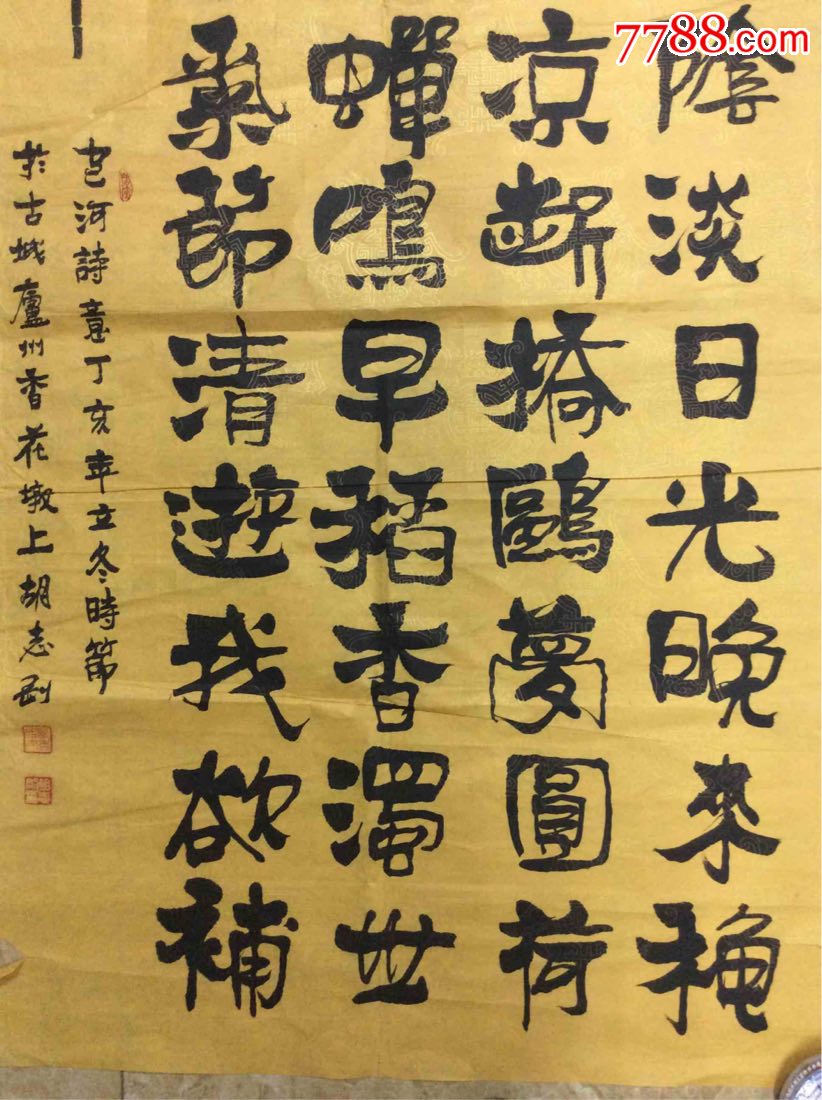 7788.com
隂淡日光晚來穐
凉斷橋鷗夢圓荷
蟬鳴早稻香濁世
節清遊我欲補
包河詩意丁亥年立冬時節
於古城廬州香花墩上胡志剛